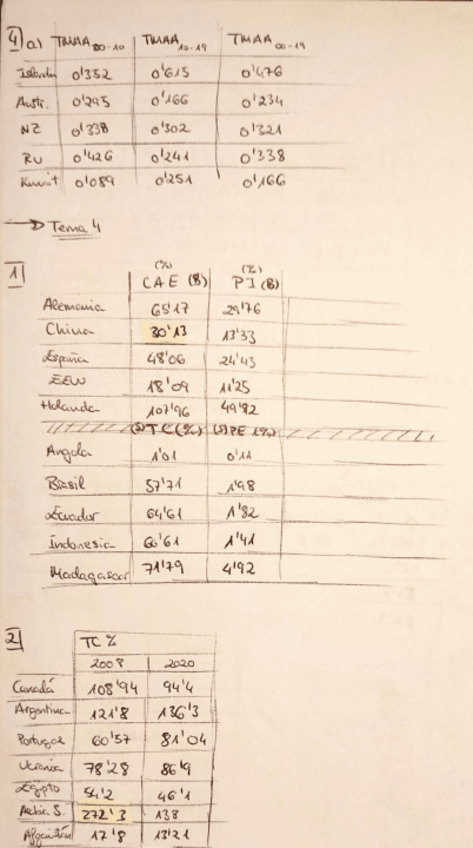 4 a) TMAA 00-10 TMAA 10-19 TMAA 00-19
Islandia 0'352 0'615 0'476
Austr. 0'295 0'166 0'234
NZ 0'338 0'302 0'321
RU 0'426 0'241 0'338
Kuwait 0'089 0'251 0'166
→ Tema 4
1
(%) (%)
CAE (B) PI (B)
Alemania 65'17 29'76
China 30'13 13'33
España 48'06 24'43
EEUU 18'09 11'25
Holanda 107'96 49'82
TC (%) PE (%)
Angola 1'01 0'11
Brasil 57'71 1'98
Ecuador 64'61 1'82
Indonesia 66'61 1'41
Madagascar 71'79 4'92
2
TC %
2008 2020
Canadá 108'94 94'4
Argentina 121'8 136'3
Portugal 60'57 81'04
Ucrania 78'28 86'9
Egipto 54'2 46'1
Arabia S. 272'3 138
Afganistán 17'8 13'21